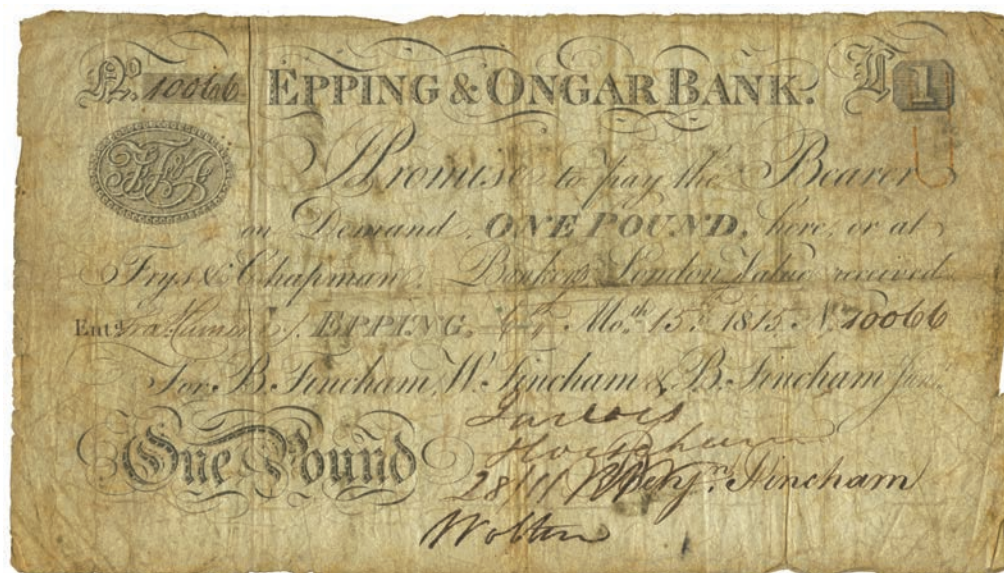 No. 10066 EPPING & ONGAR BANK. £1
I Promise to pay the Bearer
on Demand, ONE POUND, here, or at
Frys & Chapman, Bankers London Value received
Entd. EPPING, Moth. 15th. 1815. No. 10066
For B. Fincham, W. Fincham & B. Fincham Junr.
One Pound
28/11 Benjn. Fincham